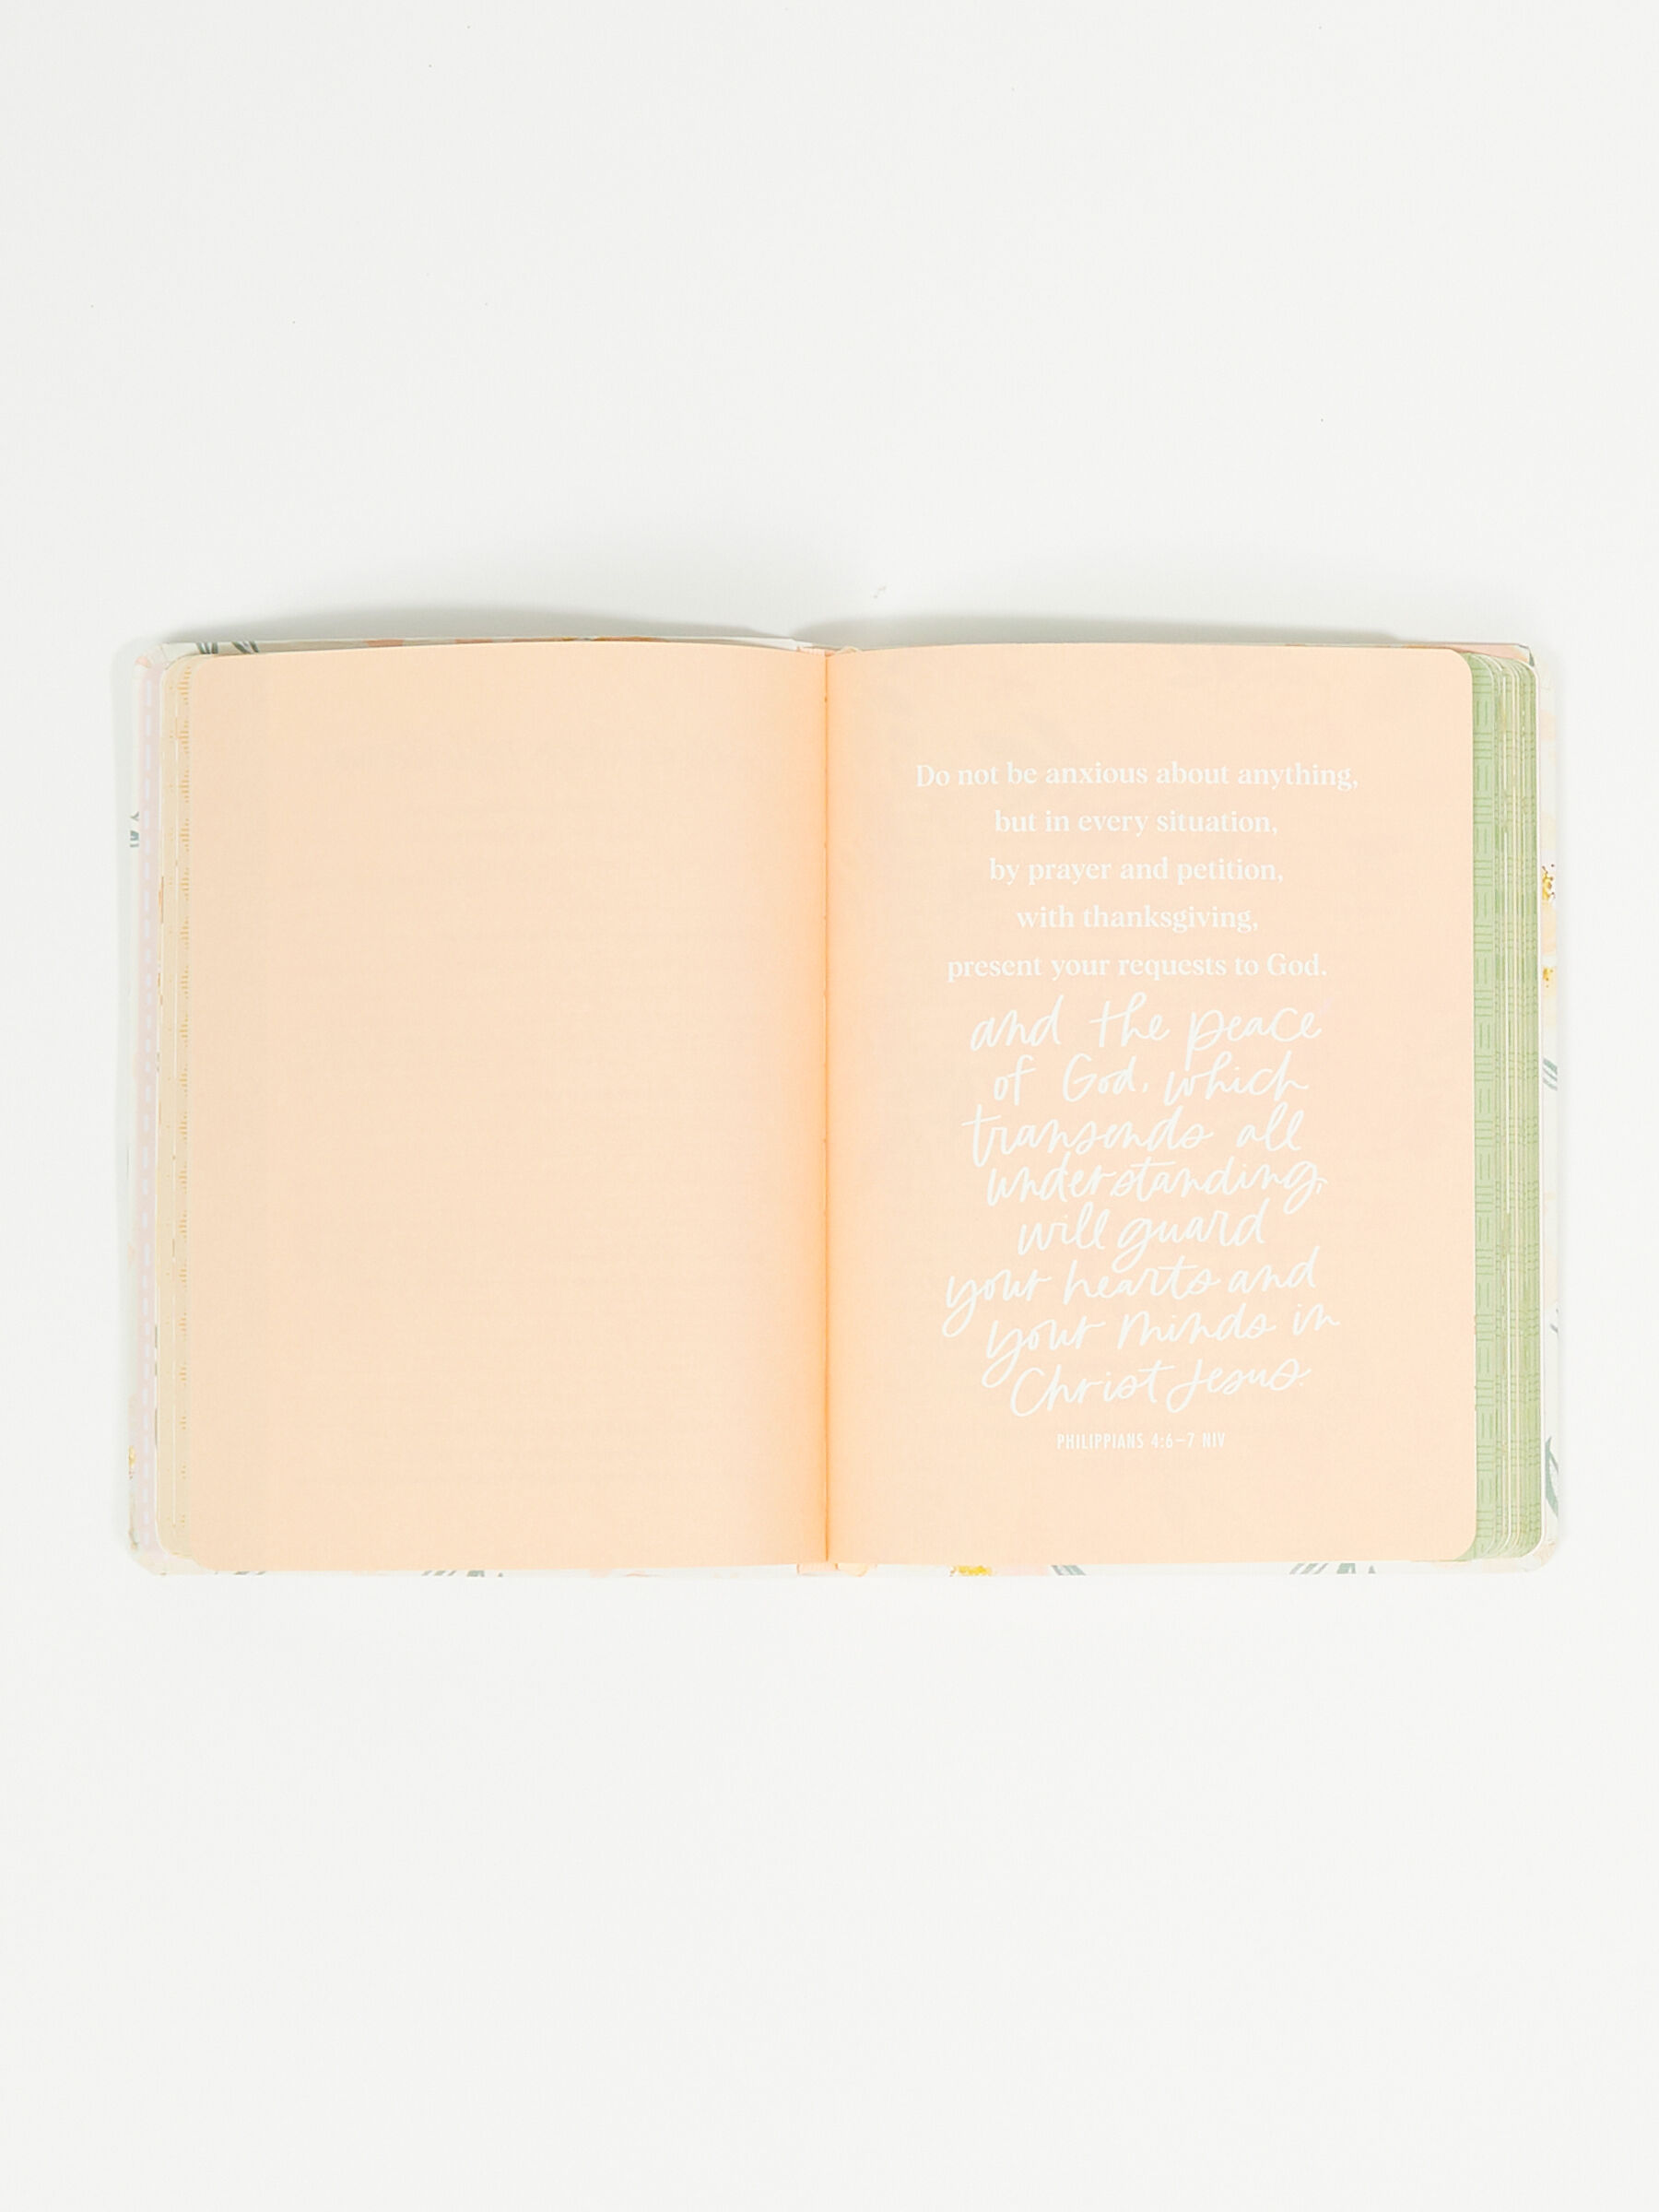 Do not be anxious about anything,
but in every situation,
by prayer and petition,
with thanksgiving,
present your requests to God.
and the peace
of God, which
transends all
understanding,
will guard
your hearts and
your minds in
Christ Jesus.
PHILIPPIANS 4:6–7 NIV